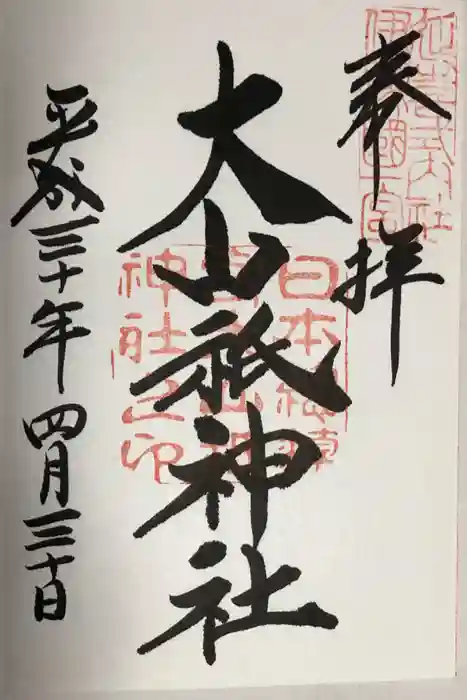 延喜式内社
伊豫國一宮
奉拝
大山祇神社
日本總鎮
神社之印
平成三十年四月三十日